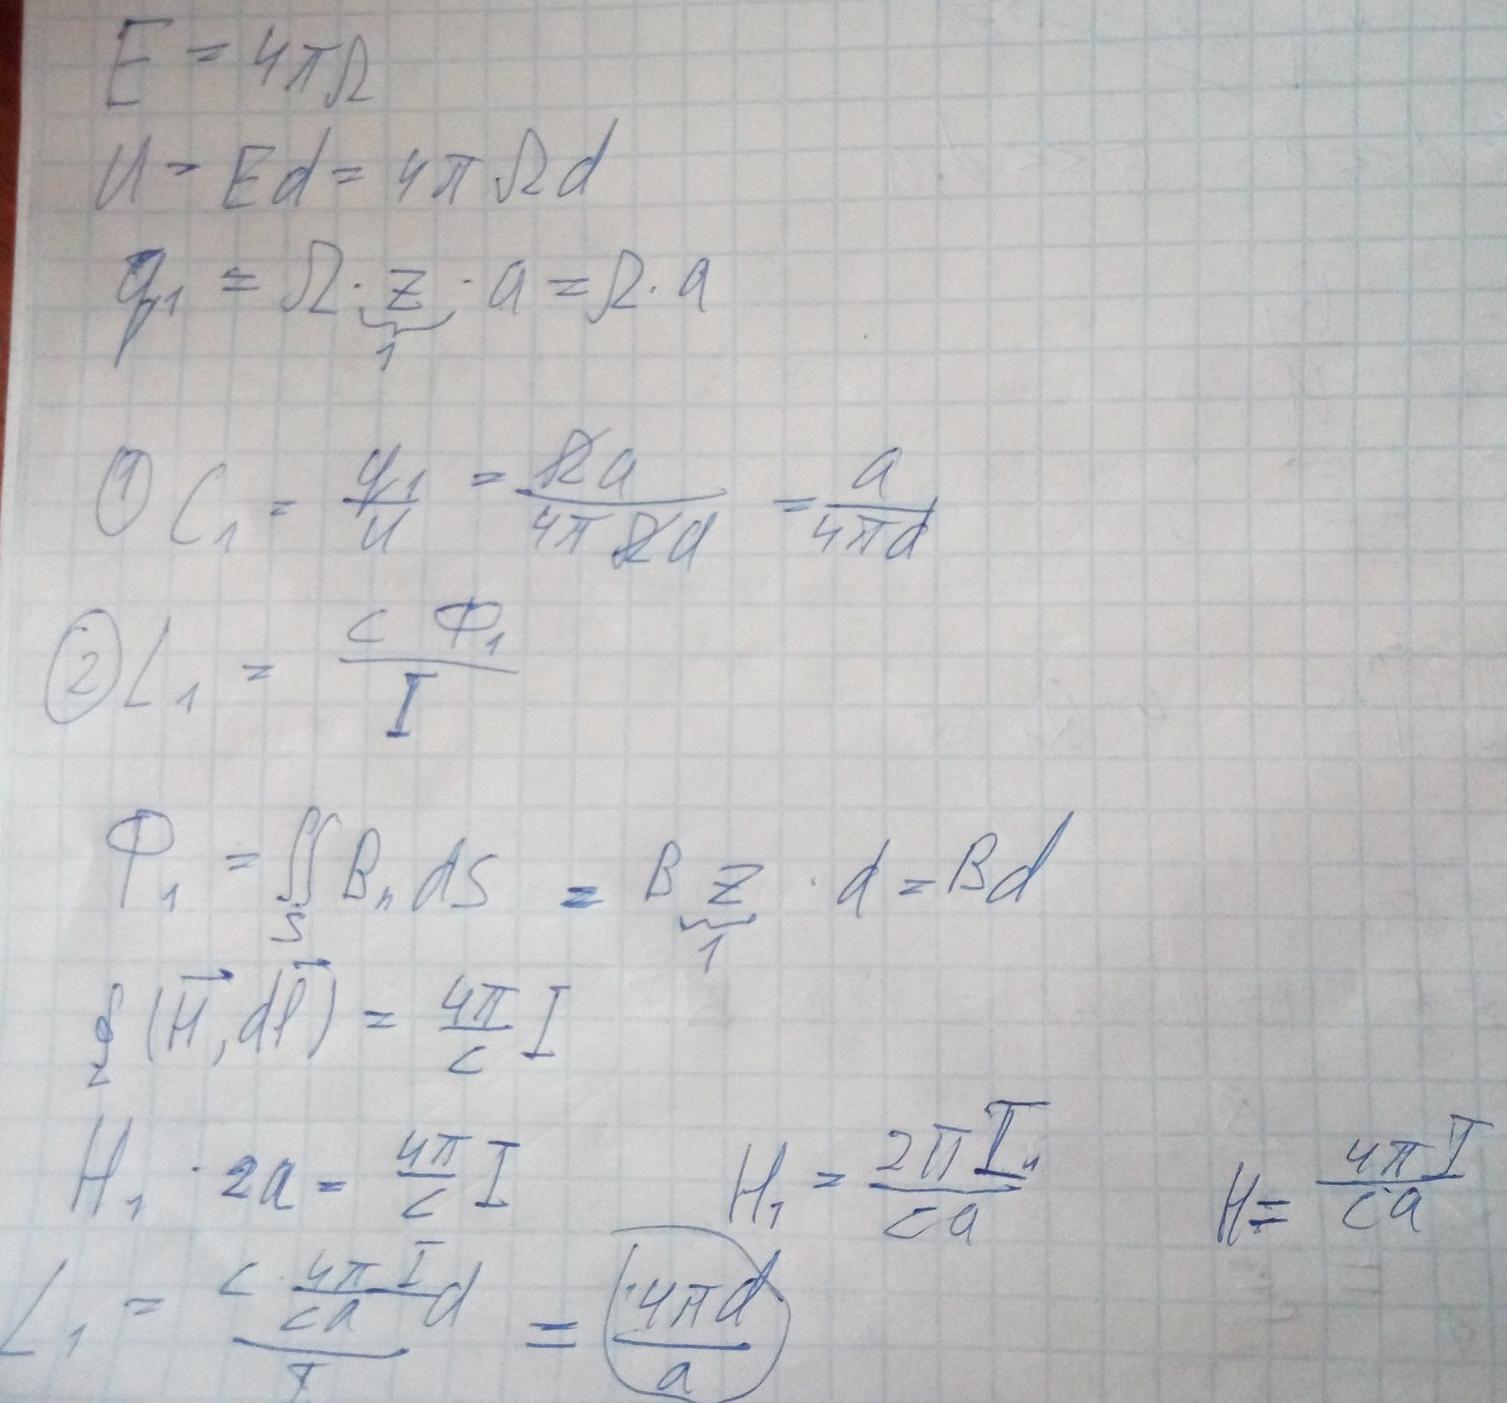 E = 4πΩ
U = Ed = 4πΩd
q₁ = Ω · z · a = Ω · a
1
① C₁ = q₁/U = Ωa/4πΩd = a/4πd
② L₁ = c Φ₁/I
Φ₁ = ∬ Bₙ dS = B z · d = Bd
S 1
∮ (H⃗, dl⃗) = 4π/c I
H₁ · 2a = 4π/c I H₁ = 2πI₁/ca H = 4πI/ca
L₁ = c · 4πI/ca d/I = 4πd/a